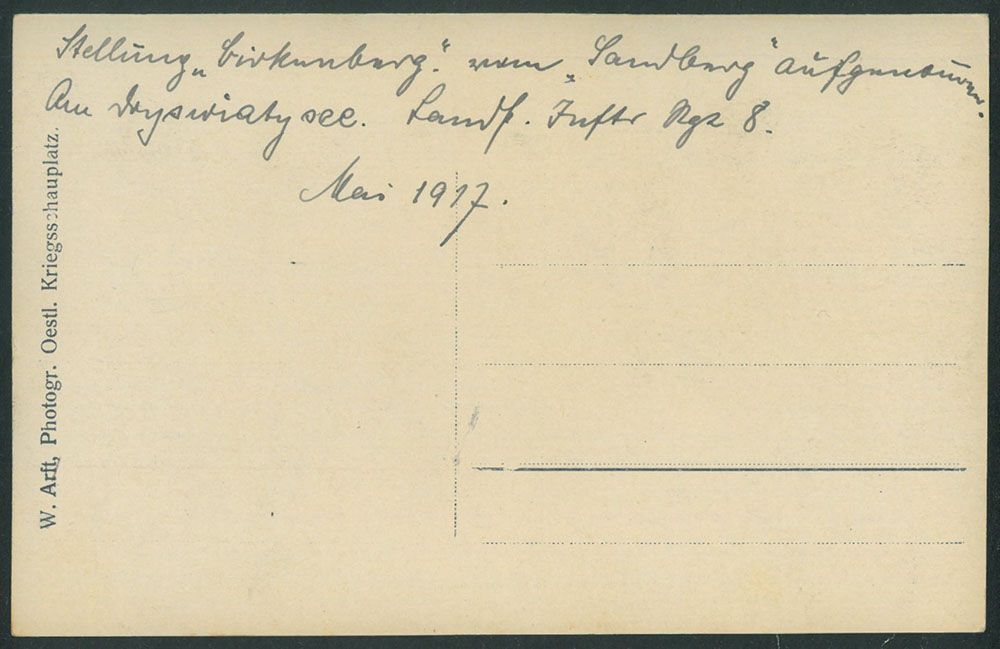 Stellung „Birkenberg“. vom „Sandberg“ aufgenommen.
Am Dryswiatysee. Landst. Inftr Rgt 8.
Mai 1917.
W. Arft, Photogr. Oestl. Kriegsschauplatz.